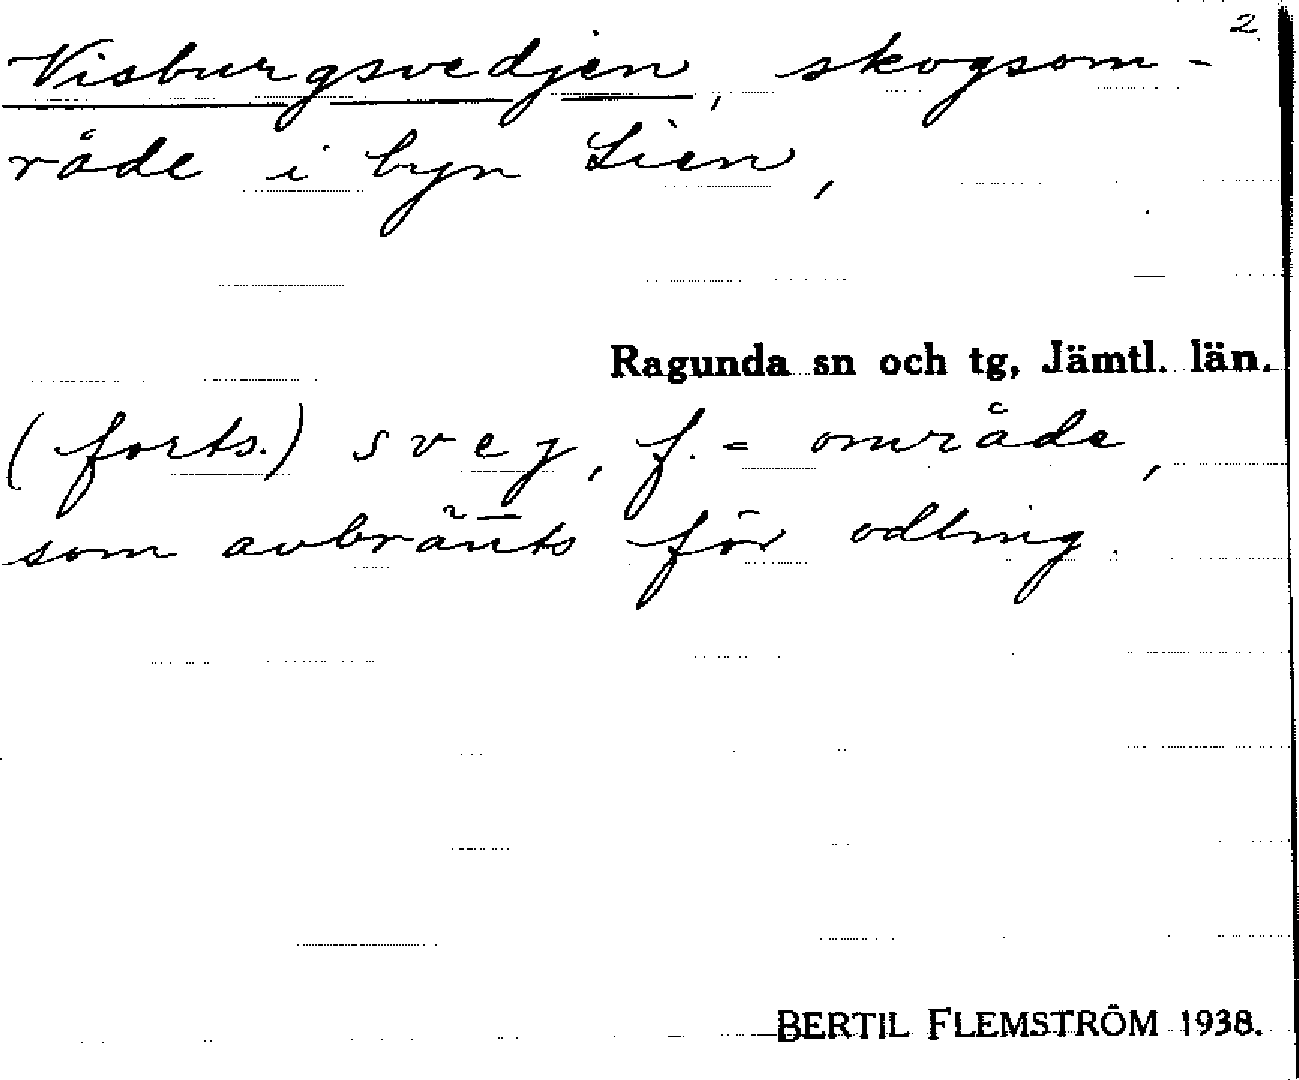 2
Visburgsvedjen, skogsom-
råde i byn Lien,
Ragunda sn och tg, Jämtl. län.
(forts.) svej, f. = område,
som avbränts för odling.
BERTIL FLEMSTRÖM 1938.